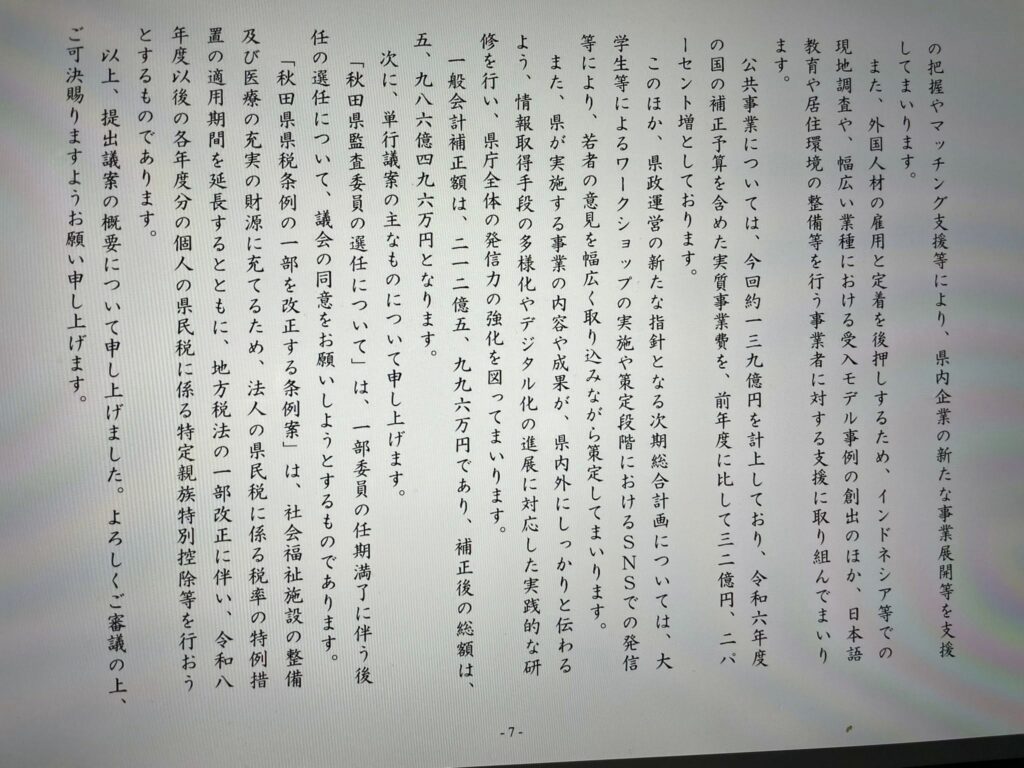 の把握やマッチング支援等により、県内企業の新たな事業展開等を支援
してまいります。
また、外国人材の雇用と定着を後押しするため、インドネシア等での
現地調査や、幅広い業種における受入モデル事例の創出のほか、日本語
教育や居住環境の整備等を行う事業者に対する支援に取り組んでまいり
ます。
公共事業については、今回約一三九億円を計上しており、令和六年度
の国の補正予算を含めた実質事業費を、前年度に比して三二億円、二パ
ーセント増としております。
このほか、県政運営の新たな指針となる次期総合計画については、大
学生等によるワークショップの実施や策定段階におけるSNSでの発信
等により、若者の意見を幅広く取り込みながら策定してまいります。
また、県が実施する事業の内容や成果が、県内外にしっかりと伝わる
よう、情報取得手段の多様化やデジタル化の進展に対応した実践的な研
修を行い、県庁全体の発信力の強化を図ってまいります。
一般会計補正額は、二一二億五、九九六万円であり、補正後の総額は、
五、九八六億四九六万円となります。
次に、単行議案の主なものについて申し上げます。
「秋田県監査委員の選任について」は、一部委員の任期満了に伴う後
任の選任について、議会の同意をお願いしようとするものであります。
「秋田県県税条例の一部を改正する条例案」は、社会福祉施設の整備
及び医療の充実の財源に充てるため、法人の県民税に係る税率の特例措
置の適用期間を延長するとともに、地方税法の一部改正に伴い、令和八
年度以後の各年度分の個人の県民税に係る特定親族特別控除等を行おう
とするものであります。
以上、提出議案の概要について申し上げました。よろしくご審議の上、
ご可決賜りますようお願い申し上げます。
- 7 -